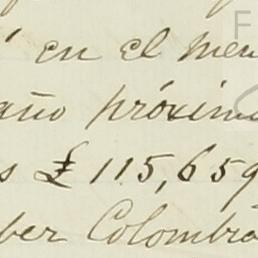 en el men
año próxim
s £ 115,659
ber Colombia